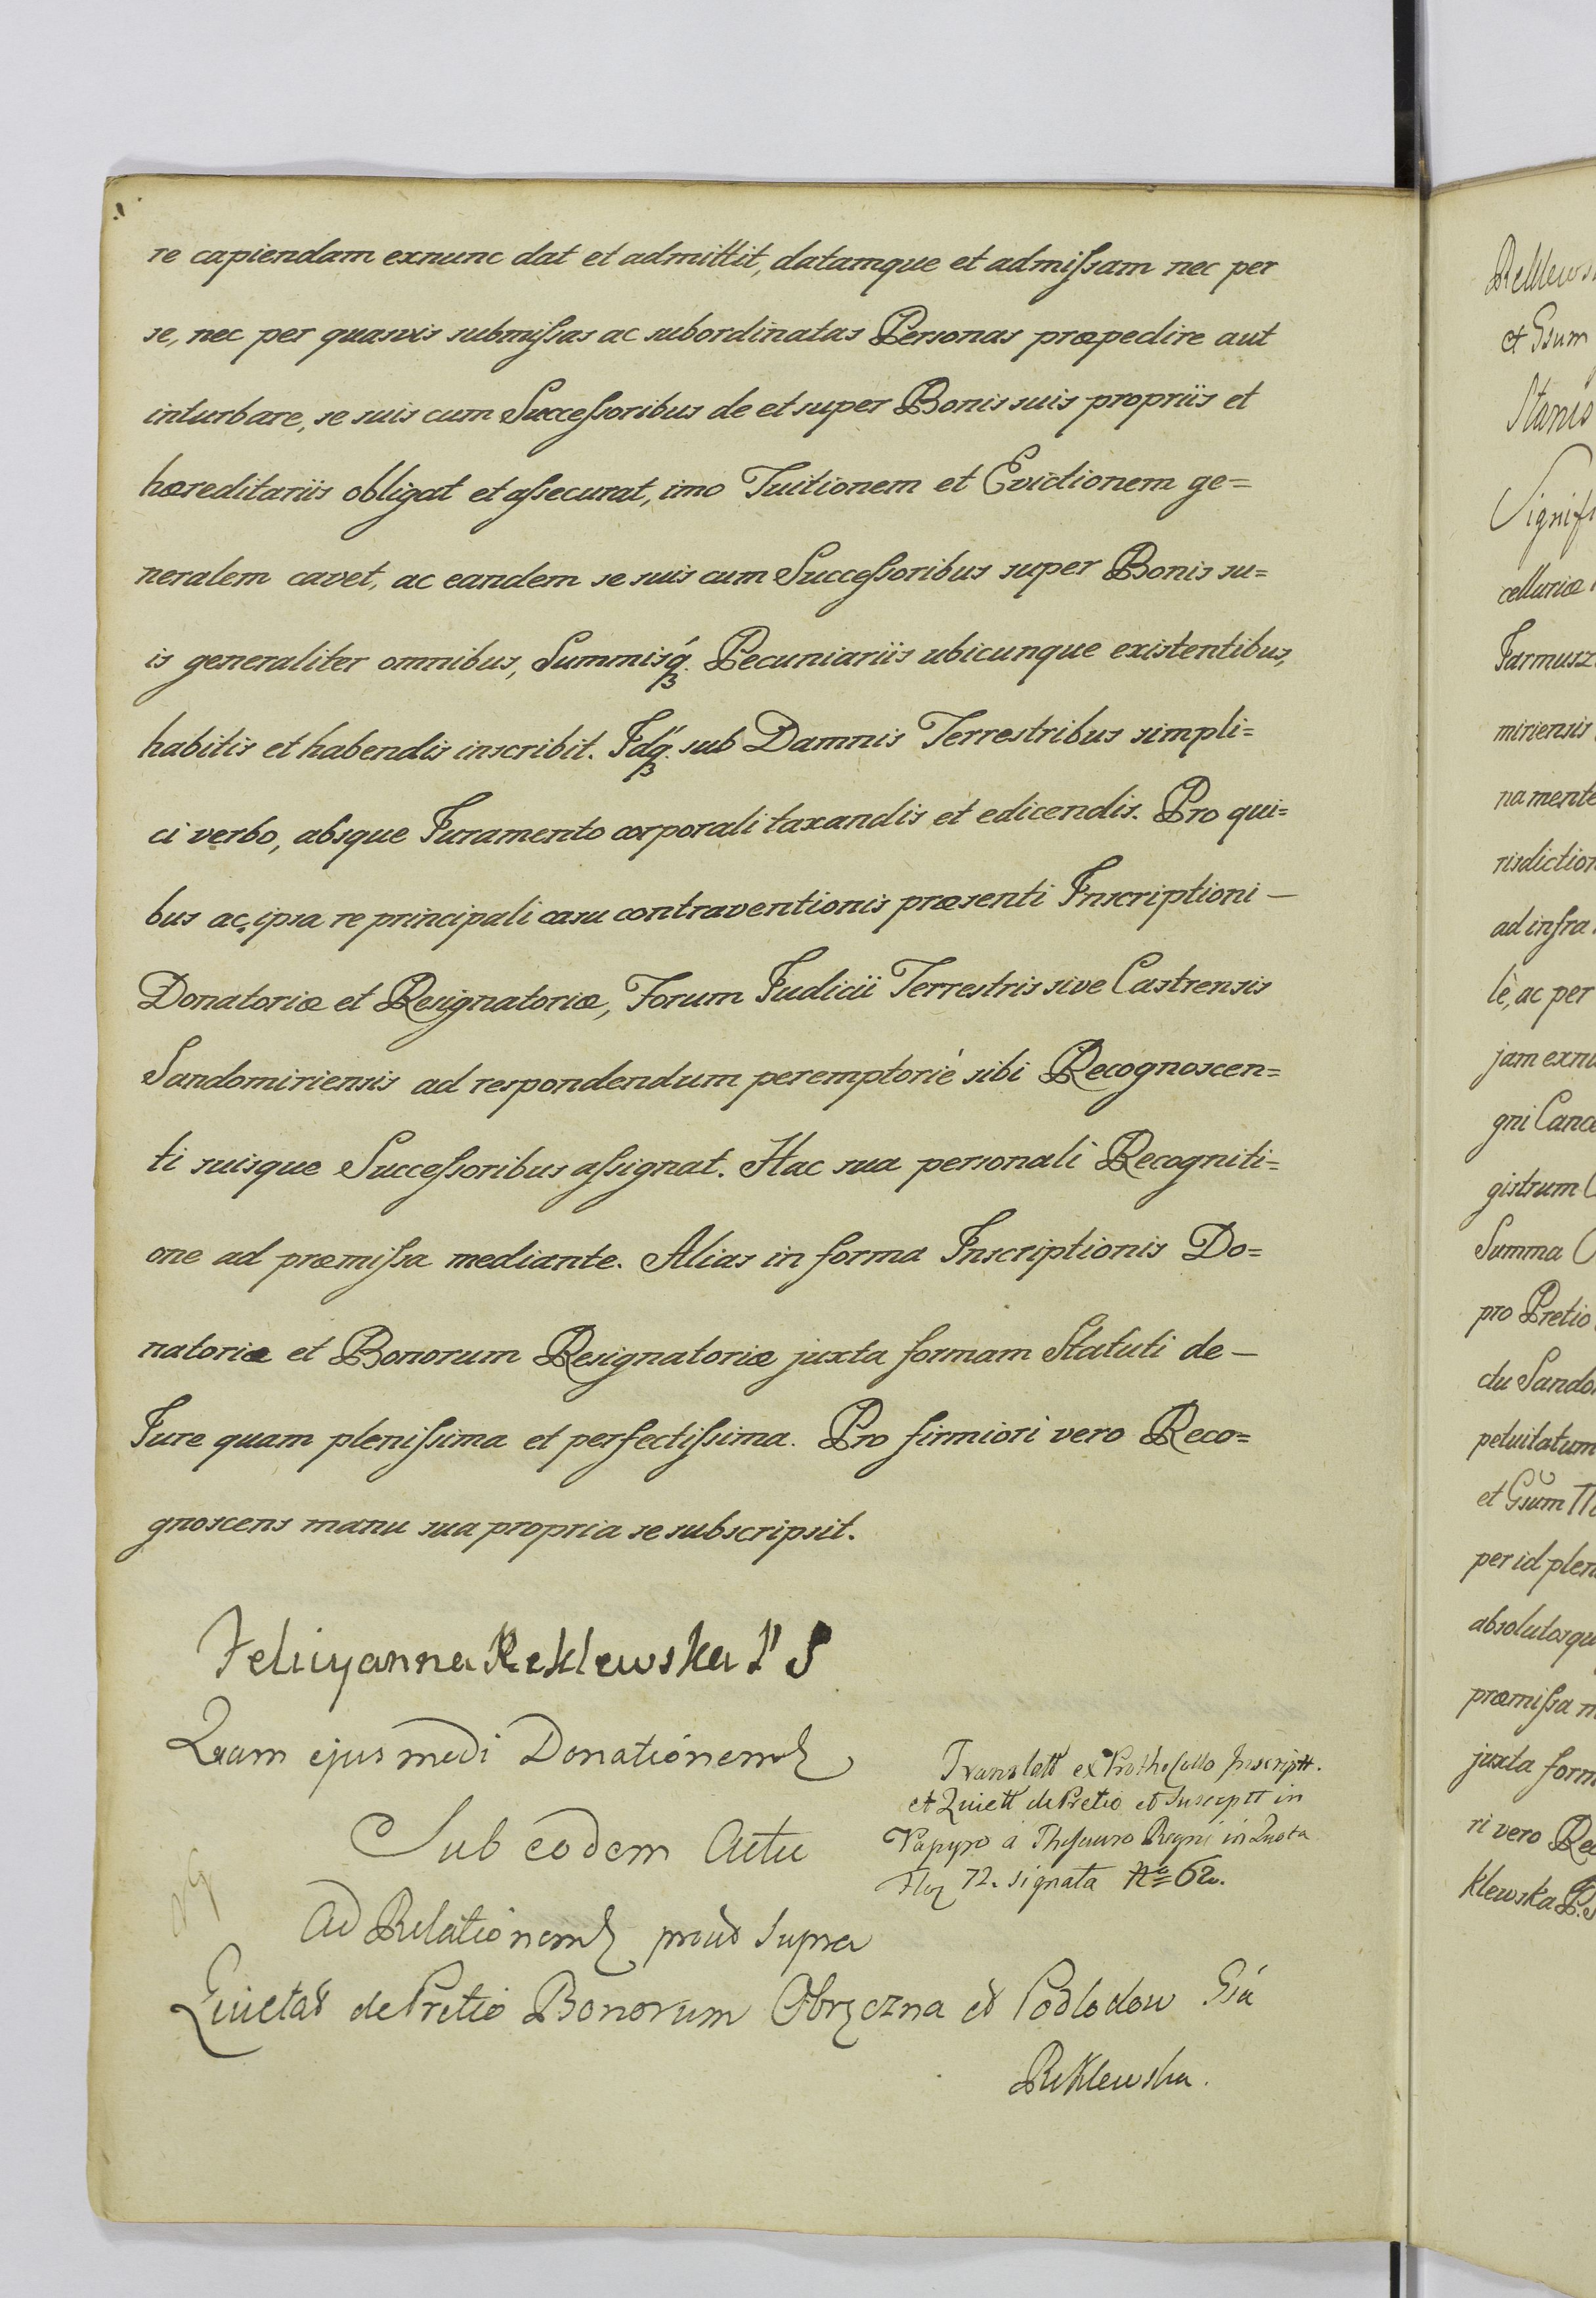 re capiendam exnunc dat et admittit, datamque et admiſsam nec per
se, nec per quasvis submiſsas ac subordinatas Personas præpedire aut
inturbare, se suis cum Succeſsoribus de et super Bonis suis propriis et
hæreditariis obligat et aſsecurat, imo Tuitionem et Evictionem ge=
neralem cavet, ac eandem se suis cum Succeſsoribus super Bonis su=
is generaliter omnibus, Summisq́ Pecuniariis ubicunque existentibus,
habitis et habendis inscribit. Idq́ sub Damnis Terrestribus simpli=
ci verbo, absque Juramento corporali taxandis et edicendis. Pro qui=
bus ac ipsa re principali casu contraventionis præsenti Inscriptioni —
Donatoriæ et Resignatoriæ, Forum Judicii Terrestris sive Castrensis
Sandomiriensis ad respondendum peremptoriè sibi Recognoscen=
ti suisque Succeſsoribus aſsignat. Hac sua personali Recogniti=
one ad præmiſsa mediante. Alias in forma Inscriptionis Do=
natoriæ et Bonorum Resignatoriæ juxta formam Statuti de —
Jure quam pleniſsima et perfectiſsima. Pro firmiori vero Reco=
gnoscens manu sua propria se subscripsit.
Felicyanna Reklewska
Quam ejusmodi Donationem
Sub eodem Actu
Ad Relationem prout supra
Translatt ex Prothocollo Inscriptt.
et Quiett de Pretio et Susceptt in
Papyro a Thesauro Regni in Quota
Flor 72. signata No 62.
Quietat de Pretio Bonorum Obręczna et Podlodow Gsa
Reklewska.
Reklews
et Gsum
Stanis
Signifi
cellariæ
Jarmusz
miriensis
na mente
risdiction
ad infra
lè, ac per
jam exnu
gni Cance
gistrum
Summa
pro Pretio
ctu Sando
petuitatum
et Gsum
per id plen
absolutosqu
præmiſsa m
juxta form
ri vero Rec
klewska